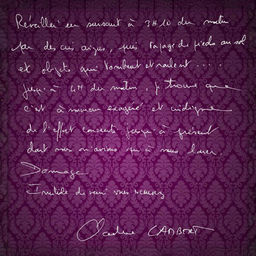 Réveillée en sursaut à 3H10 du matin
par des cris aigus, puis tapage de pieds au sol
et objets qui tombent et roulent ....
jusqu'à 4H du matin, je trouve que
c'est à nouveau exagéré et indigne
de l'effort consenti jusqu'à présent
dont nous avions à nous louer.
Dommage.
Inutile de venir vous excuser
Claudine LAMBERT